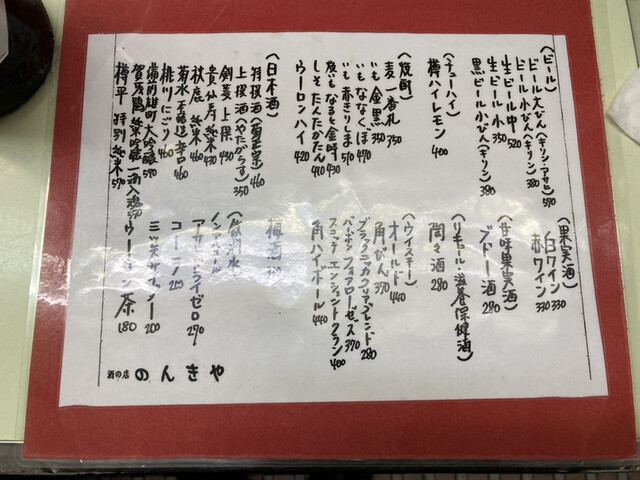 〈ビール〉
ビール大びん(キリン・アサヒ) 570
ビール小びん(キリン) 380
生ビール 中 520
生ビール 小 350
黒ビール小びん(キリン) 380
〈チューハイ〉
樽ハイレモン 400
〈焼酎〉
麦 一番札 350
いも 金黒 350
いも ななくぼ 470
いも 赤きりしま 510
焼いも なると金時 430
しそ たんたかたん 410
ウーロンハイ 420
〈日本酒〉
特撰酒(菊正宗) 460
上撰酒(やたがらす) 350
剣菱 上撰 430
貴仙寿 純米 430
枚鹿 純米 460
菊水(本醸造)辛口 460
桃川にごり 460
備前雄町 大吟醸 570
賀茂鶴 純米吟醸 一滴入魂 570
樽平 特別純米 570
〈果実酒〉
白ワイン 330
赤ワイン 330
〈甘味果実酒〉
ブドー酒 280
〈リキュール・滋養保健酒〉
陶々酒 280
〈ウイスキー〉
オールド 440
角びん 370
ブラックニッカクリアブレンド 280
バーボン フォアローゼス 370
スコッチ エンシェントクラン 400
角ハイボール 440
梅酒
〈飲料水〉
ノンアルコール
アサヒドライゼロ 290
コーラ 200
三ツ矢サイダー 200
ウーロン茶 180
酒の店 のんきや